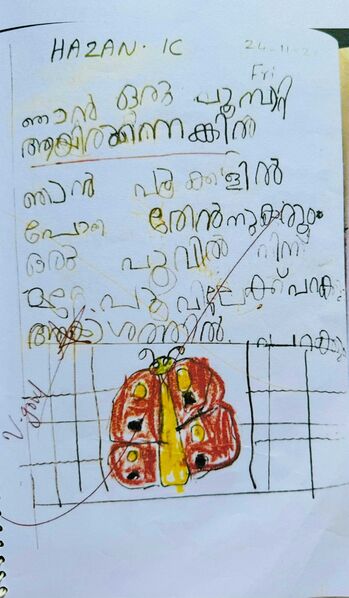 HAZAN. 1C
24-11-2
Fri
ഞാൻ ഒരു പൂമ്പാറ്റ
ആയിരുന്നെങ്കിൽ
ഞാൻ പൂക്കളിൽ
പോയി തേൻനുകരും
ഒരു പൂവിൽ നിന്ന്
മറ്റു പൂവിലേക്ക് പറക്കും
ആകാശത്തിൽ. പറക്കും
V. good